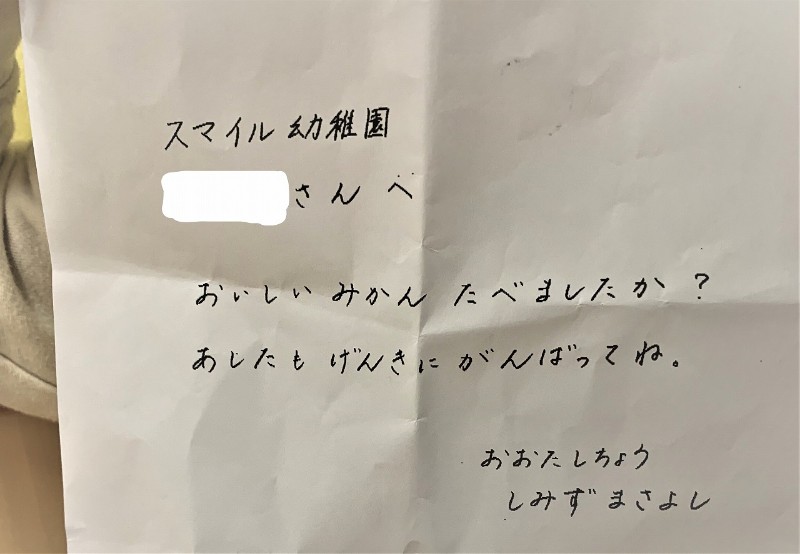 スマイル幼稚園
さんへ
おいしいみかんたべましたか?
あしたもげんきにがんばってね。
おおたしちょう
しみずまさよし